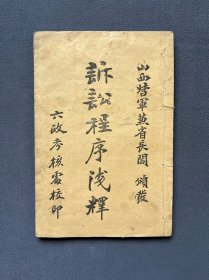 山西督軍兼省長閻 頒發
訴訟程序淺釋
六政考核處校印